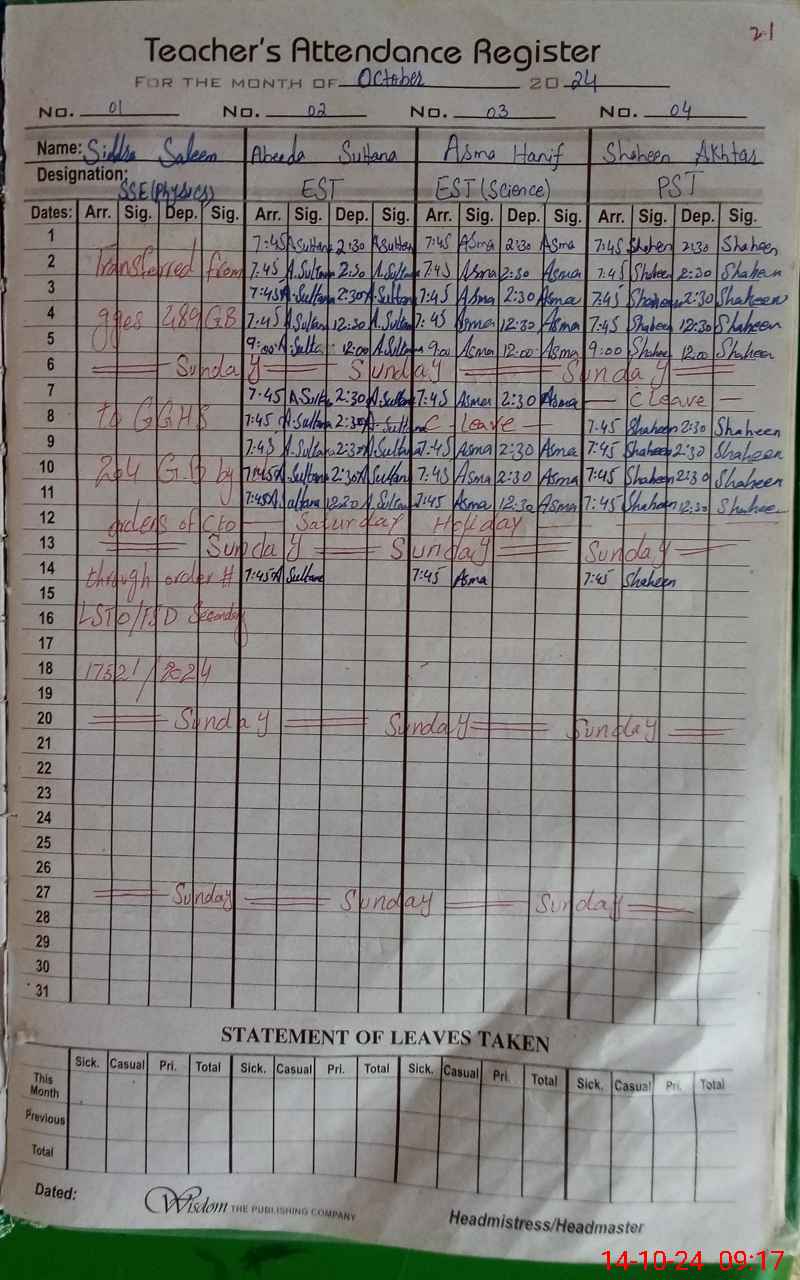 21
Teacher's Attendance Register
FOR THE MONTH OF October 2024
No. 01 No. 02 No. 03 No. 04
Name: Sidra Saleem Abeeda Sultana Asma Hanif Shaheen Akhtar
Designation: SSE(Physics) EST EST (Science) PST
Dates: Arr. Sig. Dep. Sig. Arr. Sig. Dep. Sig. Arr. Sig. Dep. Sig. Arr. Sig. Dep. Sig.
1 7:45 A Sultana 2:30 A Sultana 7:45 Asma 2:30 Asma 7:45 Shaheen 2:30 Shaheen
2 Transferred from 7:45 A.Sultana 2:30 A.Sultana 7:45 Asma 2:30 Asma 7:45 Shaheen 2:30 Shaheen
3 7:45 A.Sultana 2:30 A.Sultana 7:45 Asma 2:30 Asma 7:45 Shaheen 2:30 Shaheen
4 gges 289 GB 7:45 A.Sultana 12:30 A.Sultana 7:45 Asma 12:30 Asma 7:45 Shaheen 12:30 Shaheen
5 9:00 A.Sultana 12:00 A.Sultana 9:00 Asma 12:00 Asma 9:00 Shaheen 12:00 Shaheen
6 Sunday Sunday Sunday
7 7:45 A.Sultana 2:30 A.Sultana 7:45 Asma 2:30 Asma — C leave —
8 to GGHS 7:45 A.Sultana 2:30 A.Sultana C - leave — 7:45 Shaheen 2:30 Shaheen
9 7:45 A.Sultana 2:30 A.Sultana 7:45 Asma 2:30 Asma 7:45 Shaheen 2:30 Shaheen
10 204 G.B by 7:45 A Sultana 2:30 A Sultana 7:45 Asma 2:30 Asma 7:45 Shaheen 2:30 Shaheen
11 7:45 A Sultana 12:30 A.Sultana 7:45 Asma 12:30 Asma 7:45 Shaheen 12:30 Shaheen
12 orders of CEO — Saturday Holiday —
13 Sunday Sunday Sunday
14 through order # 7:45 A Sultana 7:45 Asma 7:45 Shaheen
15
16 LSTO/FSD Secondary
17
18 17521/2024
19
20 Sunday Sunday Sunday
21
22
23
24
25
26
27 Sunday Sunday Sunday
28
29
30
31
STATEMENT OF LEAVES TAKEN
Sick. Casual Pri. Total Sick. Casual Pri. Total Sick. Casual Pri. Total Sick. Casual Pri. Total
This Month
Previous
Total
Dated: Wisdom THE PUBLISHING COMPANY Headmistress/Headmaster
14-10-24 09:17